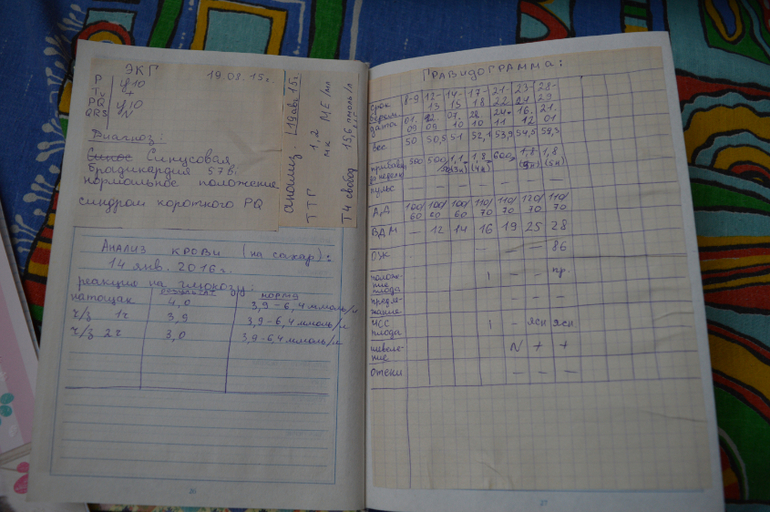 ЭКГ 19.08.15г.
P
PQ
QRS N
Диагноз:
Синусовая
брадикардия 57в'
нормальное положение
синдром короткого PQ
анализ. 19авг.15г.
ТТГ 1,2 мк МЕ/мл
Т4 свобод 15,6 пмоль/л
Анализ крови (на сахар):
14 янв. 2016г.
реакция на глюкозу:
результат норма
натощак 4,0 3,9-6,4 ммоль/л
ч/з 1ч 3,9 3,9-6,4 ммоль/л
ч/з 2ч 3,0 3,9-6,4 ммоль/л
Гравидограмма:
срок 8-9 12-13 14-15 17-18 21-22 23-24 28-29
дата 01.09 01.10 24.11 16.12 21.01
вес 50 50,5 51 52,1 53,9 54,5 58,3
прибавка 500 500 1,1 1,8 600 1,8 1,8
пульс — — — — — — —
АД 100/60 100/60 100/60 110/70 110/70 120/70 110/70
ВДМ — 12 14 16 19 25 28
ОЖ — — 86
положение плода — — пр.
предлежание — —
ЧСС плода — ясн ясн
шевеление N + +
отеки — — —